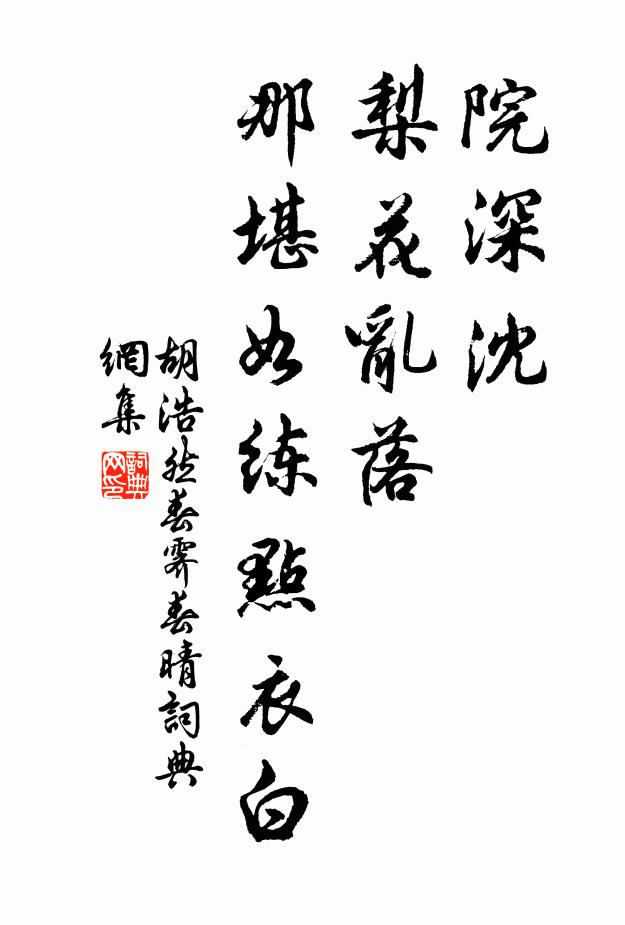 院深沈
梨花亂落
那堪如練點衣白
胡浩然春霽春晴詞典
網集
詞典
网印